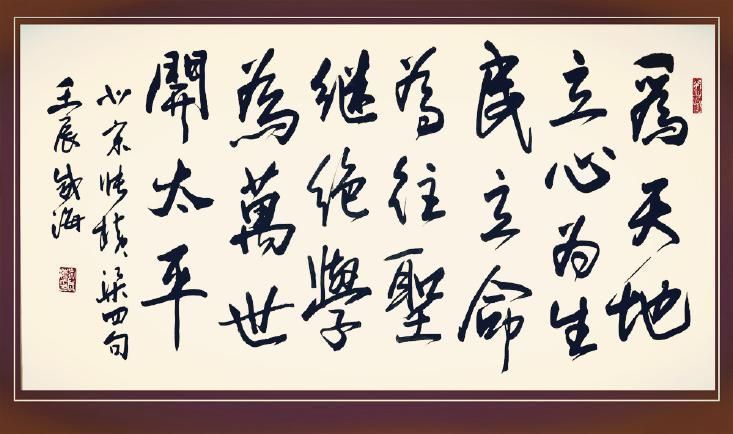 爲天地
立心为生
民立命
為往聖
继绝學
為萬世
開太平
北宋张横渠四句
壬辰威海